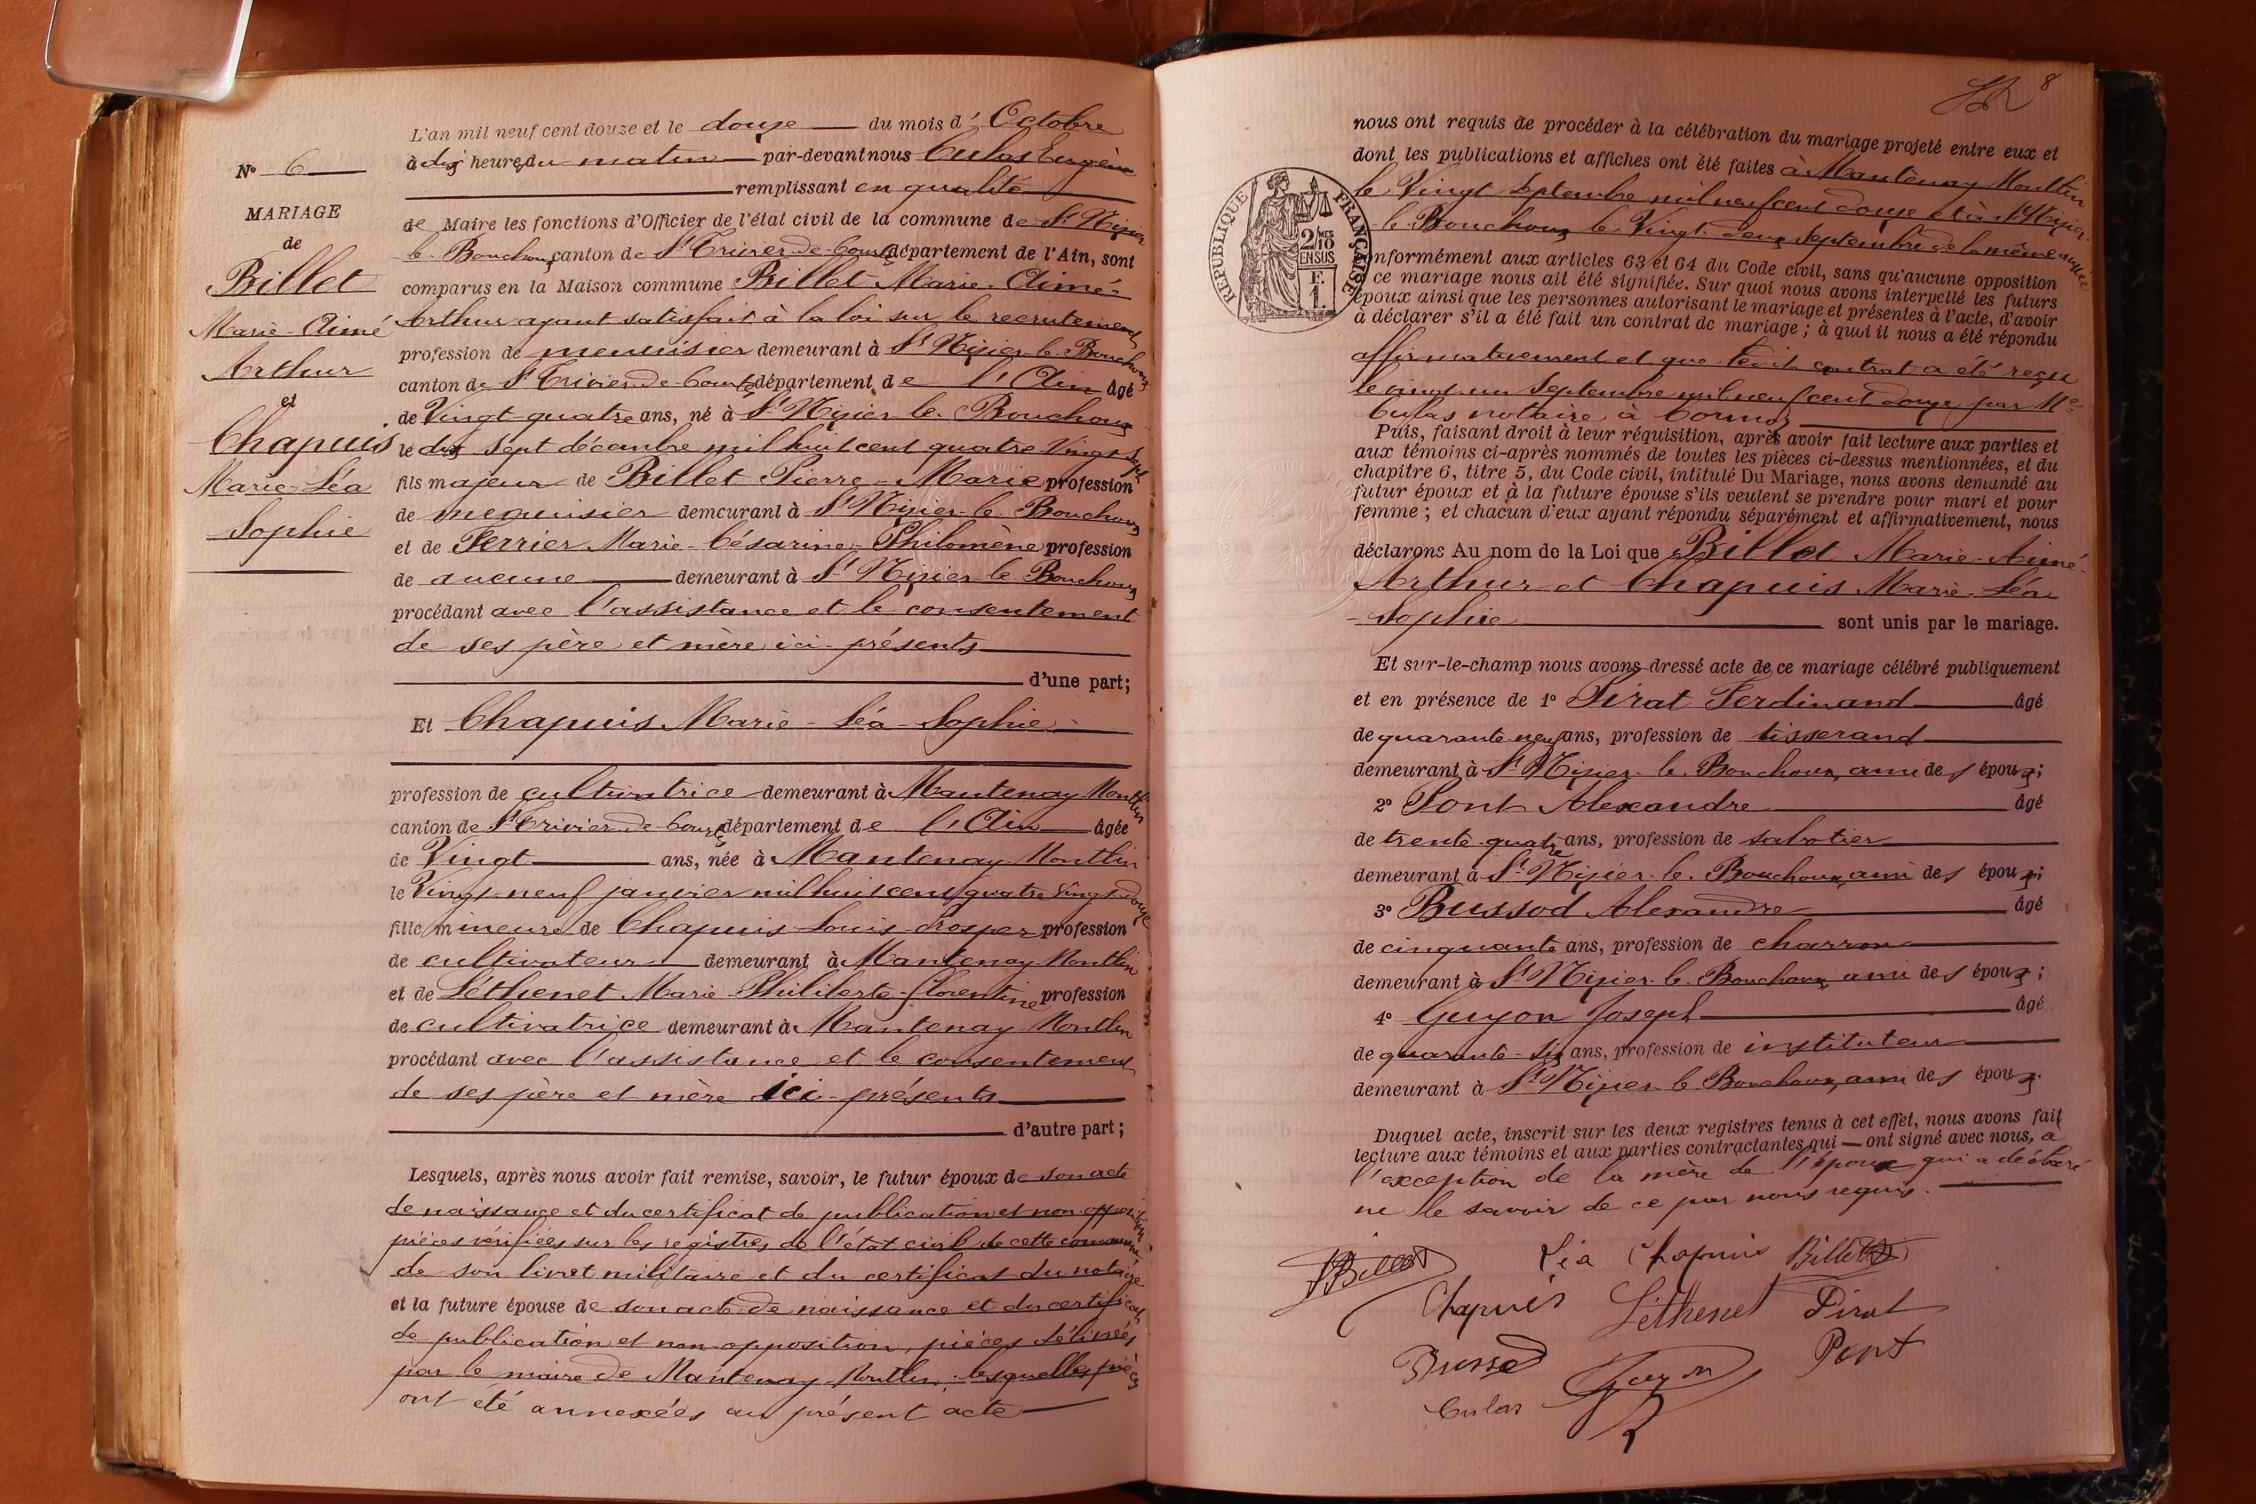 N° 6
MARIAGE
de
Billet
Marie-Aimé
Arthur
et
Chapuis
Marie-Léa
Sophie
L'an mil neuf cent douze et le douze du mois d' Octobre
à dix heures du matin par-devant nous Culas Eugène
remplissant en qualité
de Maire les fonctions d'Officier de l'état civil de la commune de St Nizier
le Bouchoux canton de St Trivier-de-Courtes département de l'Ain, sont
comparus en la Maison commune Billet Marie-Aimé-
Arthur ayant satisfait à la loi sur le recrutement
profession de menuisier demeurant à St Nizier-le-Bouchoux
canton de St Trivier-de-Courtes département de l'Ain âgé
de Vingt-quatre ans, né à St Nizier-le-Bouchoux
le dix sept décembre mil huit cent quatre Vingt sept
fils majeur de Billet Pierre-Marie profession
de menuisier demeurant à St Nizier-le-Bouchoux
et de Ferrier Marie-Césarine-Philomène profession
de aucune demeurant à St Nizier le Bouchoux
procédant avec l'assistance et le consentement
de ses père et mère ici présents
d'une part;
Et Chapuis Marie-Léa-Sophie
profession de cultivatrice demeurant à Mantenay Montlin
canton de St Trivier-de-Courtes département de l'Ain âgée
de Vingt ans, née à Mantenay Montlin
le Vingt-neuf janvier mil huit cent quatre vingt-douze
fille mineure de Chapuis Louis Prosper profession
de cultivateur demeurant à Mantenay Montlin
et de Léthenet Marie-Philiberte-Florentine profession
de cultivatrice demeurant à Mantenay Montlin
procédant avec l'assistance et le consentement
de ses père et mère ici présents
d'autre part;
Lesquels, après nous avoir fait remise, savoir, le futur époux de son acte
de naissance et du certificat de publication et non opposition
pièces vérifiées sur les registres de l'état civil de cette commune
de son livret militaire et du certificat du notaire
et la future épouse de son acte de naissance et du certificat
de publication et non-opposition, pièces délivrées
par le maire de Mantenay Montlin, lesquelles pièces
ont été annexées au présent acte
8
nous ont requis de procéder à la célébration du mariage projeté entre eux et
dont les publications et affiches ont été faites à Mantenay Montlin
le Vingt Septembre mil neuf cent douze et à St Nizier-
le Bouchoux le Vingt-deux Septembre de la même année
conformément aux articles 63 et 64 du Code civil, sans qu'aucune opposition
à ce mariage nous ait été signifiée. Sur quoi nous avons interpellé les futurs
époux ainsi que les personnes autorisant le mariage et présentes à l'acte, d'avoir
à déclarer s'il a été fait un contrat de mariage; à quoi il nous a été répondu
affirmativement et que ledit contrat a été reçu
le vingt un Septembre mil neuf cent douze par Me
Culas notaire à Cormoz
Puis, faisant droit à leur réquisition, après avoir fait lecture aux parties et
aux témoins ci-après nommés de toutes les pièces ci-dessus mentionnées, et du
chapitre 6, titre 5, du Code civil, intitulé Du Mariage, nous avons demandé au
futur époux et à la future épouse s'ils veulent se prendre pour mari et pour
femme; et chacun d'eux ayant répondu séparément et affirmativement, nous
déclarons Au nom de la Loi que Billet Marie-Aimé-
Arthur et Chapuis Marie-Léa
-Sophie sont unis par le mariage.
Et sur-le-champ nous avons dressé acte de ce mariage célébré publiquement
et en présence de 1° Pirat Ferdinand âgé
de quarante neuf ans, profession de tisserand
demeurant à St Nizier-le-Bouchoux, ami des époux;
2° Pont Alexandre âgé
de trente quatre ans, profession de sabotier
demeurant à St Nizier-le-Bouchoux, ami des époux;
3° Bussod Alexandre âgé
de cinquante ans, profession de charron
demeurant à St Nizier-le-Bouchoux, ami des époux;
4° Guyon Joseph âgé
de quarante-six ans, profession de instituteur
demeurant à St Nizier-le-Bouchoux, ami des époux.
Duquel acte, inscrit sur les deux registres tenus à cet effet, nous avons fait
lecture aux témoins et aux parties contractantes, qui — ont signé avec nous, à
l'exception de la mère de l'époux qui a déclaré
ne le savoir de ce par nous requis.
RÉPUBLIQUE FRANÇAISE
2/10
MES
EN SUS
F.
1.
ABillet Léa Chapuis Billet
Chapuis Léthenet Pirat
Bussod Guyon Pont
Culas